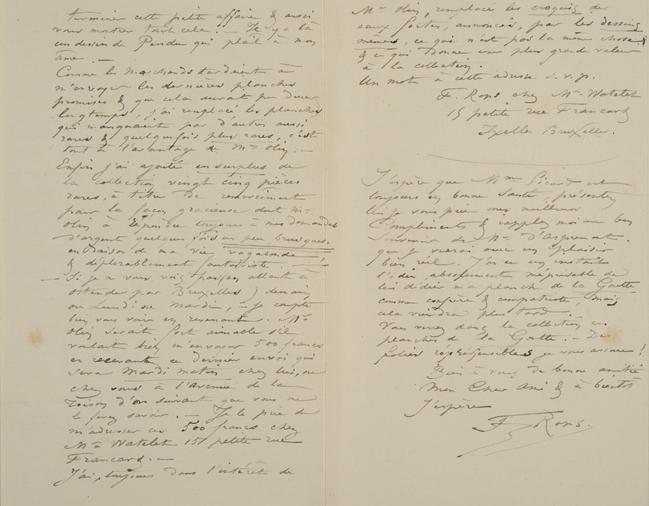 terminer cette petite affaire & aussi
vous montrer tout cela. — Il y a là
un dessin de Pandu qui plait à mon
âme. —
Comme les Marchands tardaient à
m'envoyer les dernières planches
promises & que cela aurait pu durer
longtemps, j'ai remplacé les planches
qui manquaient par d'autres aussi
rares & quelquefois plus rares, c'est
tout à l'avantage de Mr Olin. —
Enfin j'ai ajouté en surplus de
la collection vingt cinq pièces
rares, à titre de remerciement
pour la façon gracieuse dont Mr
Olin a répondu toujours à mes demandes
d'argent quelques fois un peu brusques,
en raison de ma vie vagabonde,
& déplorablement fantaisiste —
— Si je ne vous vois pas (en allant à
Ostende par Bruxelles) demain
ou Lundi ou Mardi, — Je compte
bien vous voir en revenant. Mr
Olin serait fort aimable s'il
voulait bien m'envoyer 500 francs
en recevant ce dernier envoi qui
sera Mardi matin chez lui, ou
chez vous à l'Avenue de la
Toison d'or suivant que vous me
le ferez savoir. — Je le prie de
m'adresser ces 500 francs chez
Mr Watelet 15 petite rue
Francard. —
J'ai, toujours dans l'intérêt de
Mr Olin, remplacé les croquis des
eaux fortes, annoncés, par les dessins
mêmes, ce qui n'est pas la même chose
& ce qui donne une plus grande valeur
à la collection.
Un mot à cette adresse s.v.p.
F. Rops chez Mr Watelet
15 petite rue Francard
Ixelle Bruxelles.
J'espère que Mme Picard est
toujours en bonne santé, présentez
lui je vous prie mes meilleurs
Compliments & rappelez moi au bon
souvenir de Mr d'Aspremont.
que je verrai avec un plaisir
bien réel. J'ai eu un instant
l'idée absolument méprisable de
lui dédier ma planche de la Goutte
comme confrère & compatriote, mais
cela viendra plus tard.
Vous verrez dans la collection les
planches de la Goutte. — Des
folies répréhensibles je vous assure!
Bien à vous de bonne amitié
Mon Cher Ami & à bientôt
J'espère
F. Rops.